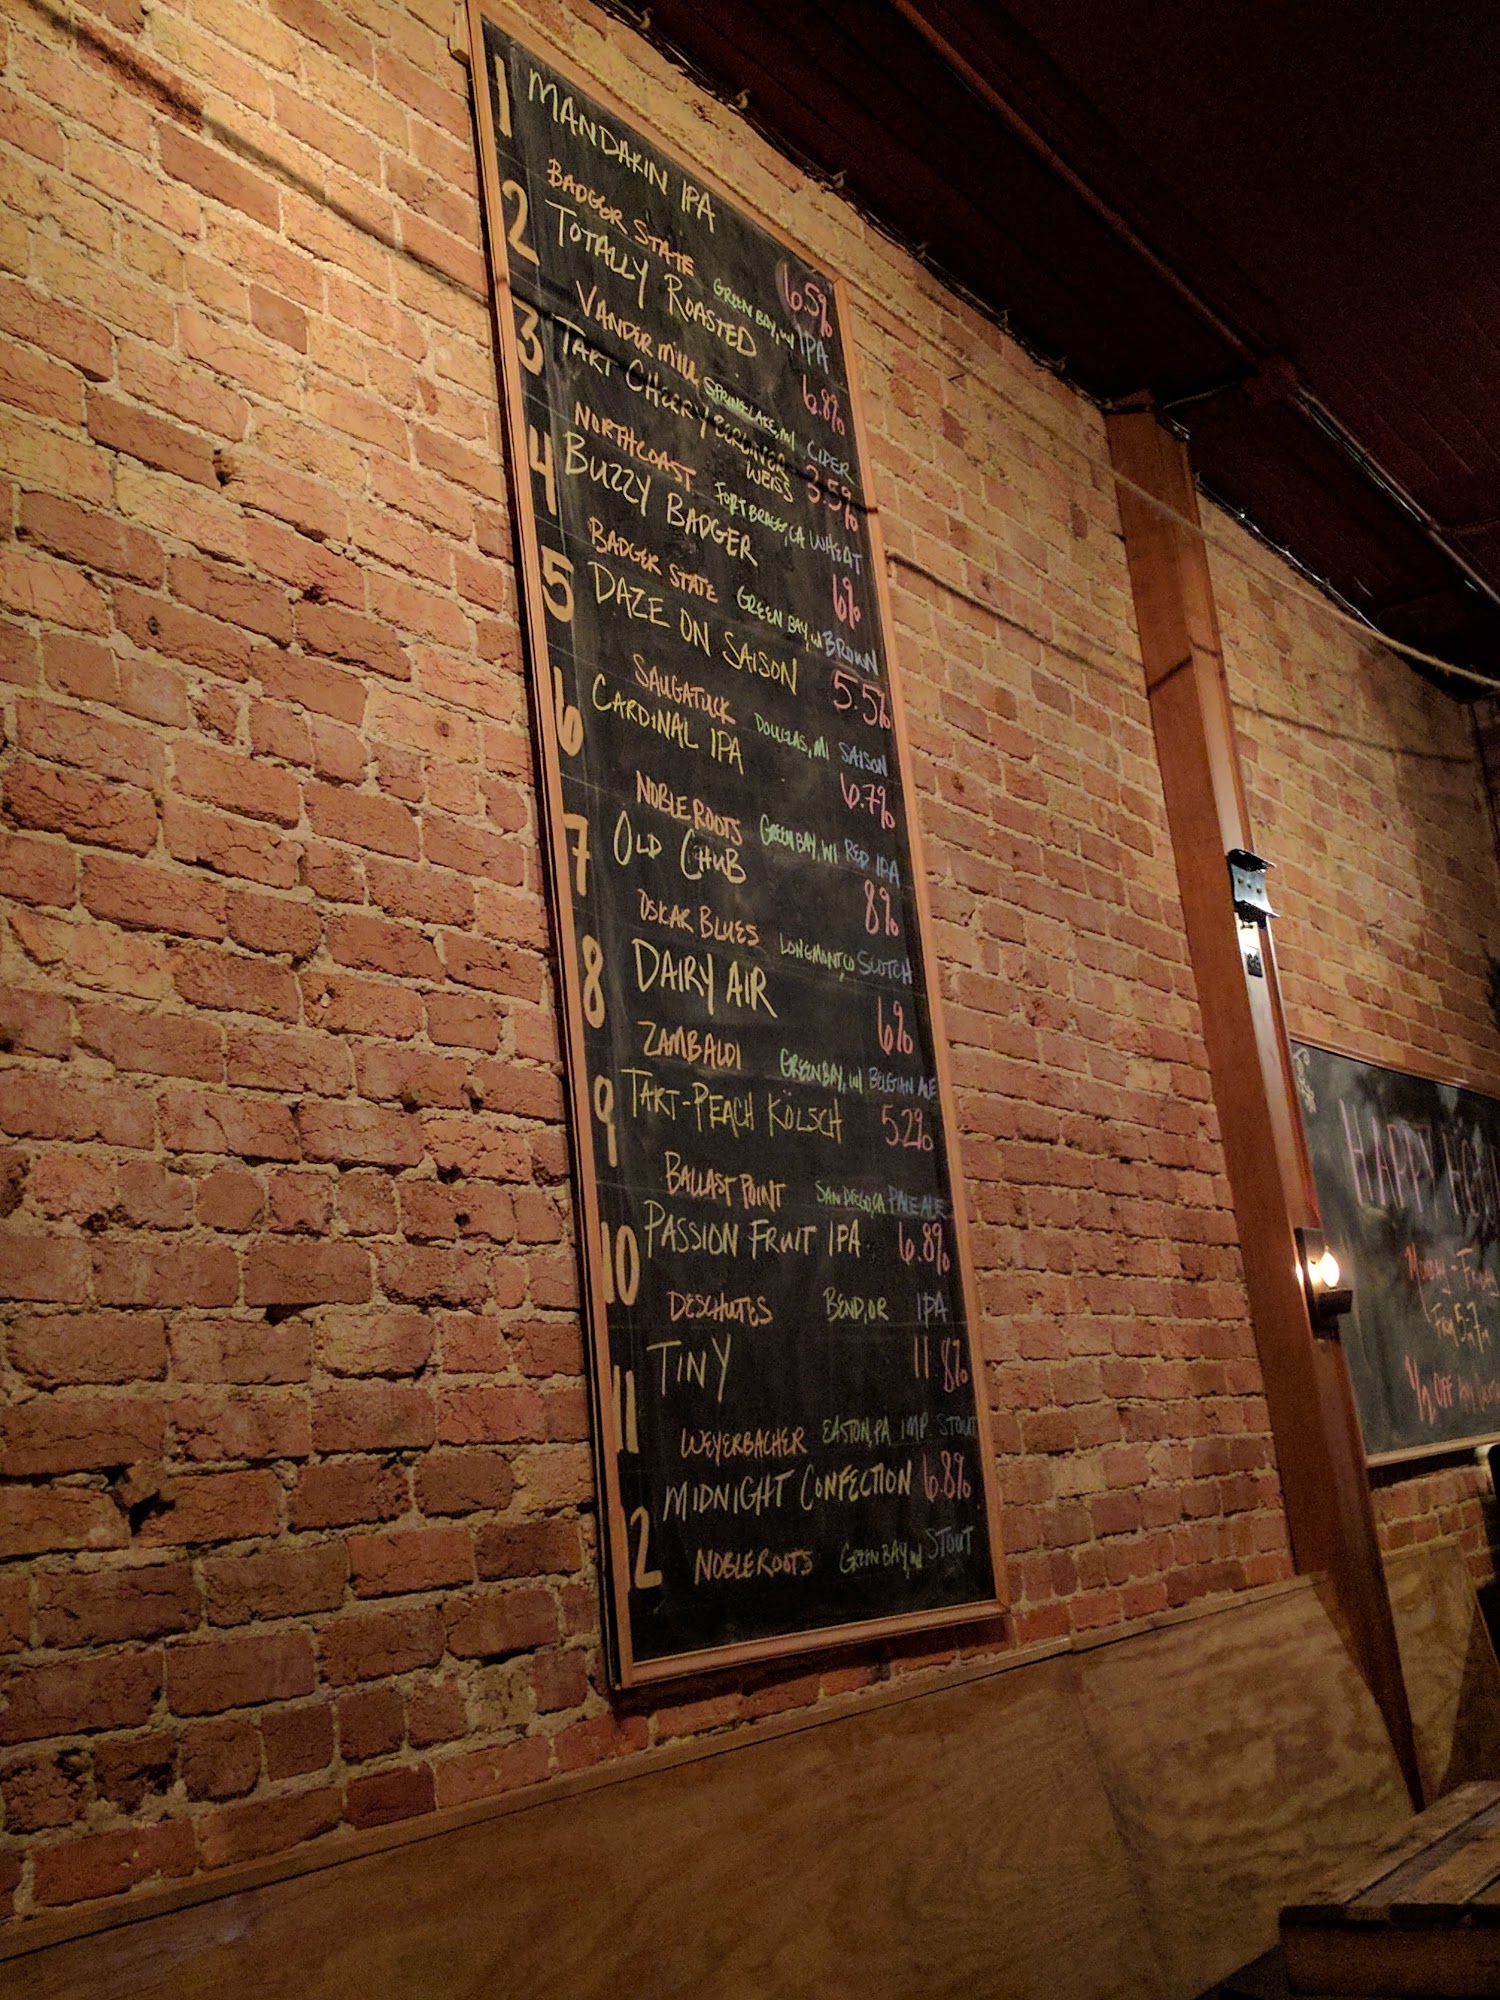 1 MANDARIN IPA 6.5%
BADGER STATE GREEN BAY, WI IPA
2 TOTALLY ROASTED 6.8%
VANDER MILL SPRING LAKE, MI CIDER
3 TART CHERRY BERLINER WEISS 3.5%
NORTHCOAST FORT BRAGG, CA WHEAT
4 BUZZY BADGER 6%
BADGER STATE GREEN BAY, WI BROWN
5 DAZE ON SAISON 5.5%
SAUGATUCK DOUGLAS, MI SAISON
6 CARDINAL IPA 6.7%
NOBLE ROOTS GREEN BAY, WI RED IPA
7 OLD CHUB 8%
OSKAR BLUES LONGMONT, CO SCOTCH
8 DAIRY AIR 6%
ZAMBALDI GREEN BAY, WI BELGIAN ALE
9 TART-PEACH KÖLSCH 5.2%
BALLAST POINT SAN DIEGO, CA PALE ALE
10 PASSION FRUIT IPA 6.8%
DESCHUTES BEND, OR IPA
11 TINY 11.8%
WEYERBACHER EASTON, PA IMP. STOUT
12 MIDNIGHT CONFECTION 6.8%
NOBLE ROOTS GREEN BAY, WI STOUT
HAPPY HOU
MONDAY - FRIDAY
FROM 5-7
1/2 OFF